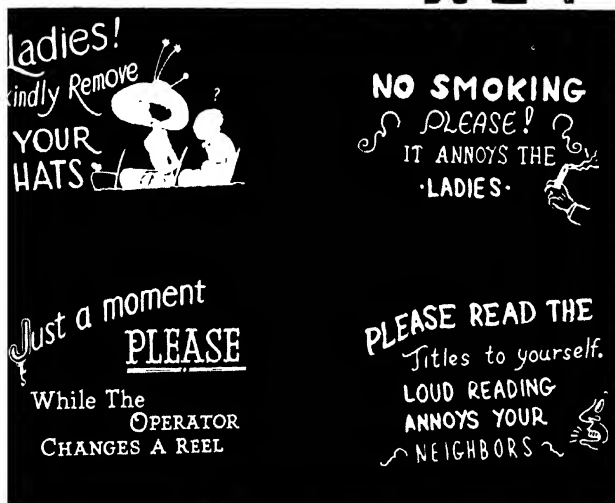 Ladies!
Kindly Remove
YOUR
HATS
?
NO SMOKING
PLEASE!
IT ANNOYS THE
·LADIES·
Just a moment
PLEASE
While The
OPERATOR
CHANGES A REEL
PLEASE READ THE
Titles to yourself.
LOUD READING
ANNOYS YOUR
NEIGHBORS